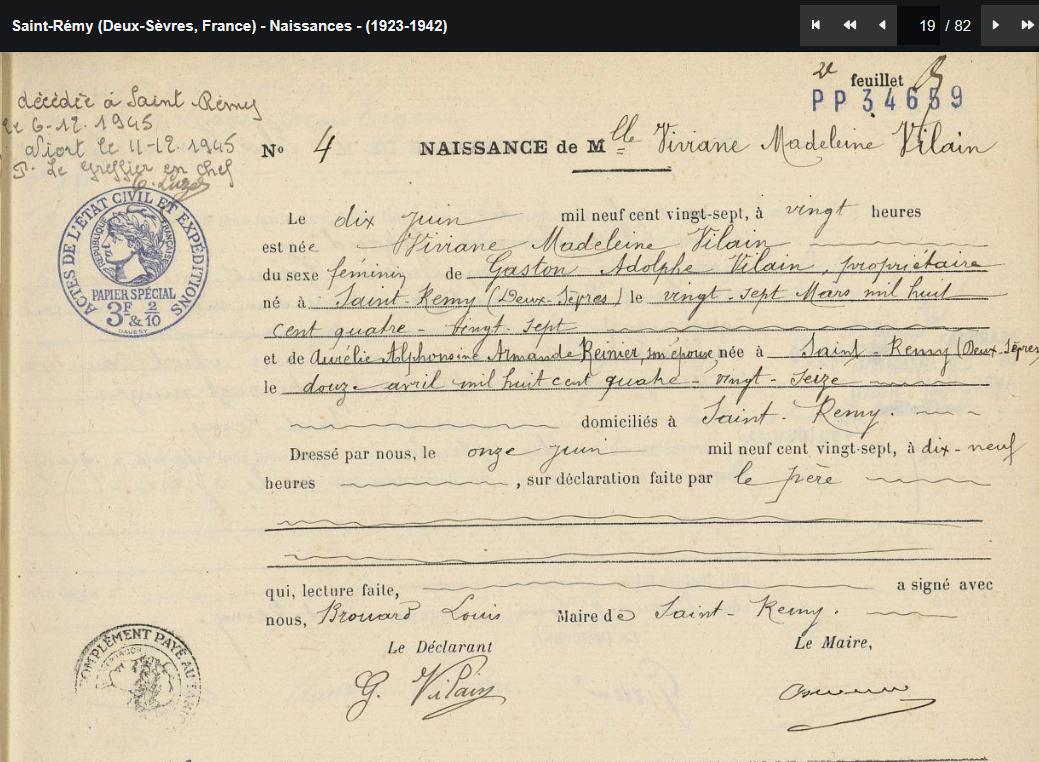 Saint-Rémy (Deux-Sèvres, France) - Naissances - (1923-1942)
19 / 82
2e feuillet
PP 34659
décédée à Saint Rémy
le 6-12-1945
Niort le 11-12-1945
P. Le Greffier en chef
ACTES DE L'ETAT CIVIL ET EXPÉDITIONS
RÉPUBLIQUE FRANÇAISE
PAPIER SPÉCIAL
3F & 2/10
No 4 NAISSANCE de Mlle Viviane Madeleine Vilain
Le dix juin mil neuf cent vingt-sept, à vingt heures
est née Viviane Madeleine Vilain
du sexe féminin de Gaston Adolphe Vilain, propriétaire
né à Saint-Remy (Deux-Sèvres) le vingt-sept Mars mil huit
cent quatre-vingt-sept
et de Aurélie Alphonsine Armande Reinier, son épouse, née à Saint-Remy (Deux-Sèpres
le douze avril mil huit cent quatre-vingt-seize
domiciliés à Saint-Remy
Dressé par nous, le onze juin mil neuf cent vingt-sept, à dix-neuf
heures , sur déclaration faite par le père
qui, lecture faite, a signé avec
nous, Brouard Louis Maire de Saint-Remy.
Le Déclarant Le Maire,
G. Vilain
COMPLÉMENT PAYÉ AU